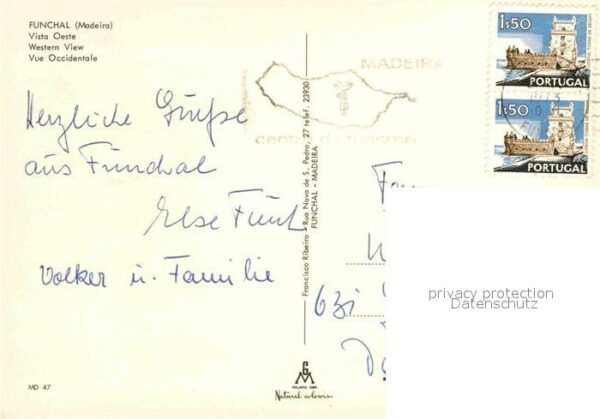 FUNCHAL (Madeira)
Vista Oeste
Western View
Vue Occidentale
Herzliche Grüße
aus Funchal
Else
Volker u. Familie
MD 47
Francisco Ribeiro - Rua Nova de S. Pedro, 27 telef. 23930
FUNCHAL - MADEIRA
GM
Natural colours
MADEIRA
centro de turismo
1$50
PORTUGAL
1$50
PORTUGAL
privacy protection
Datenschutz